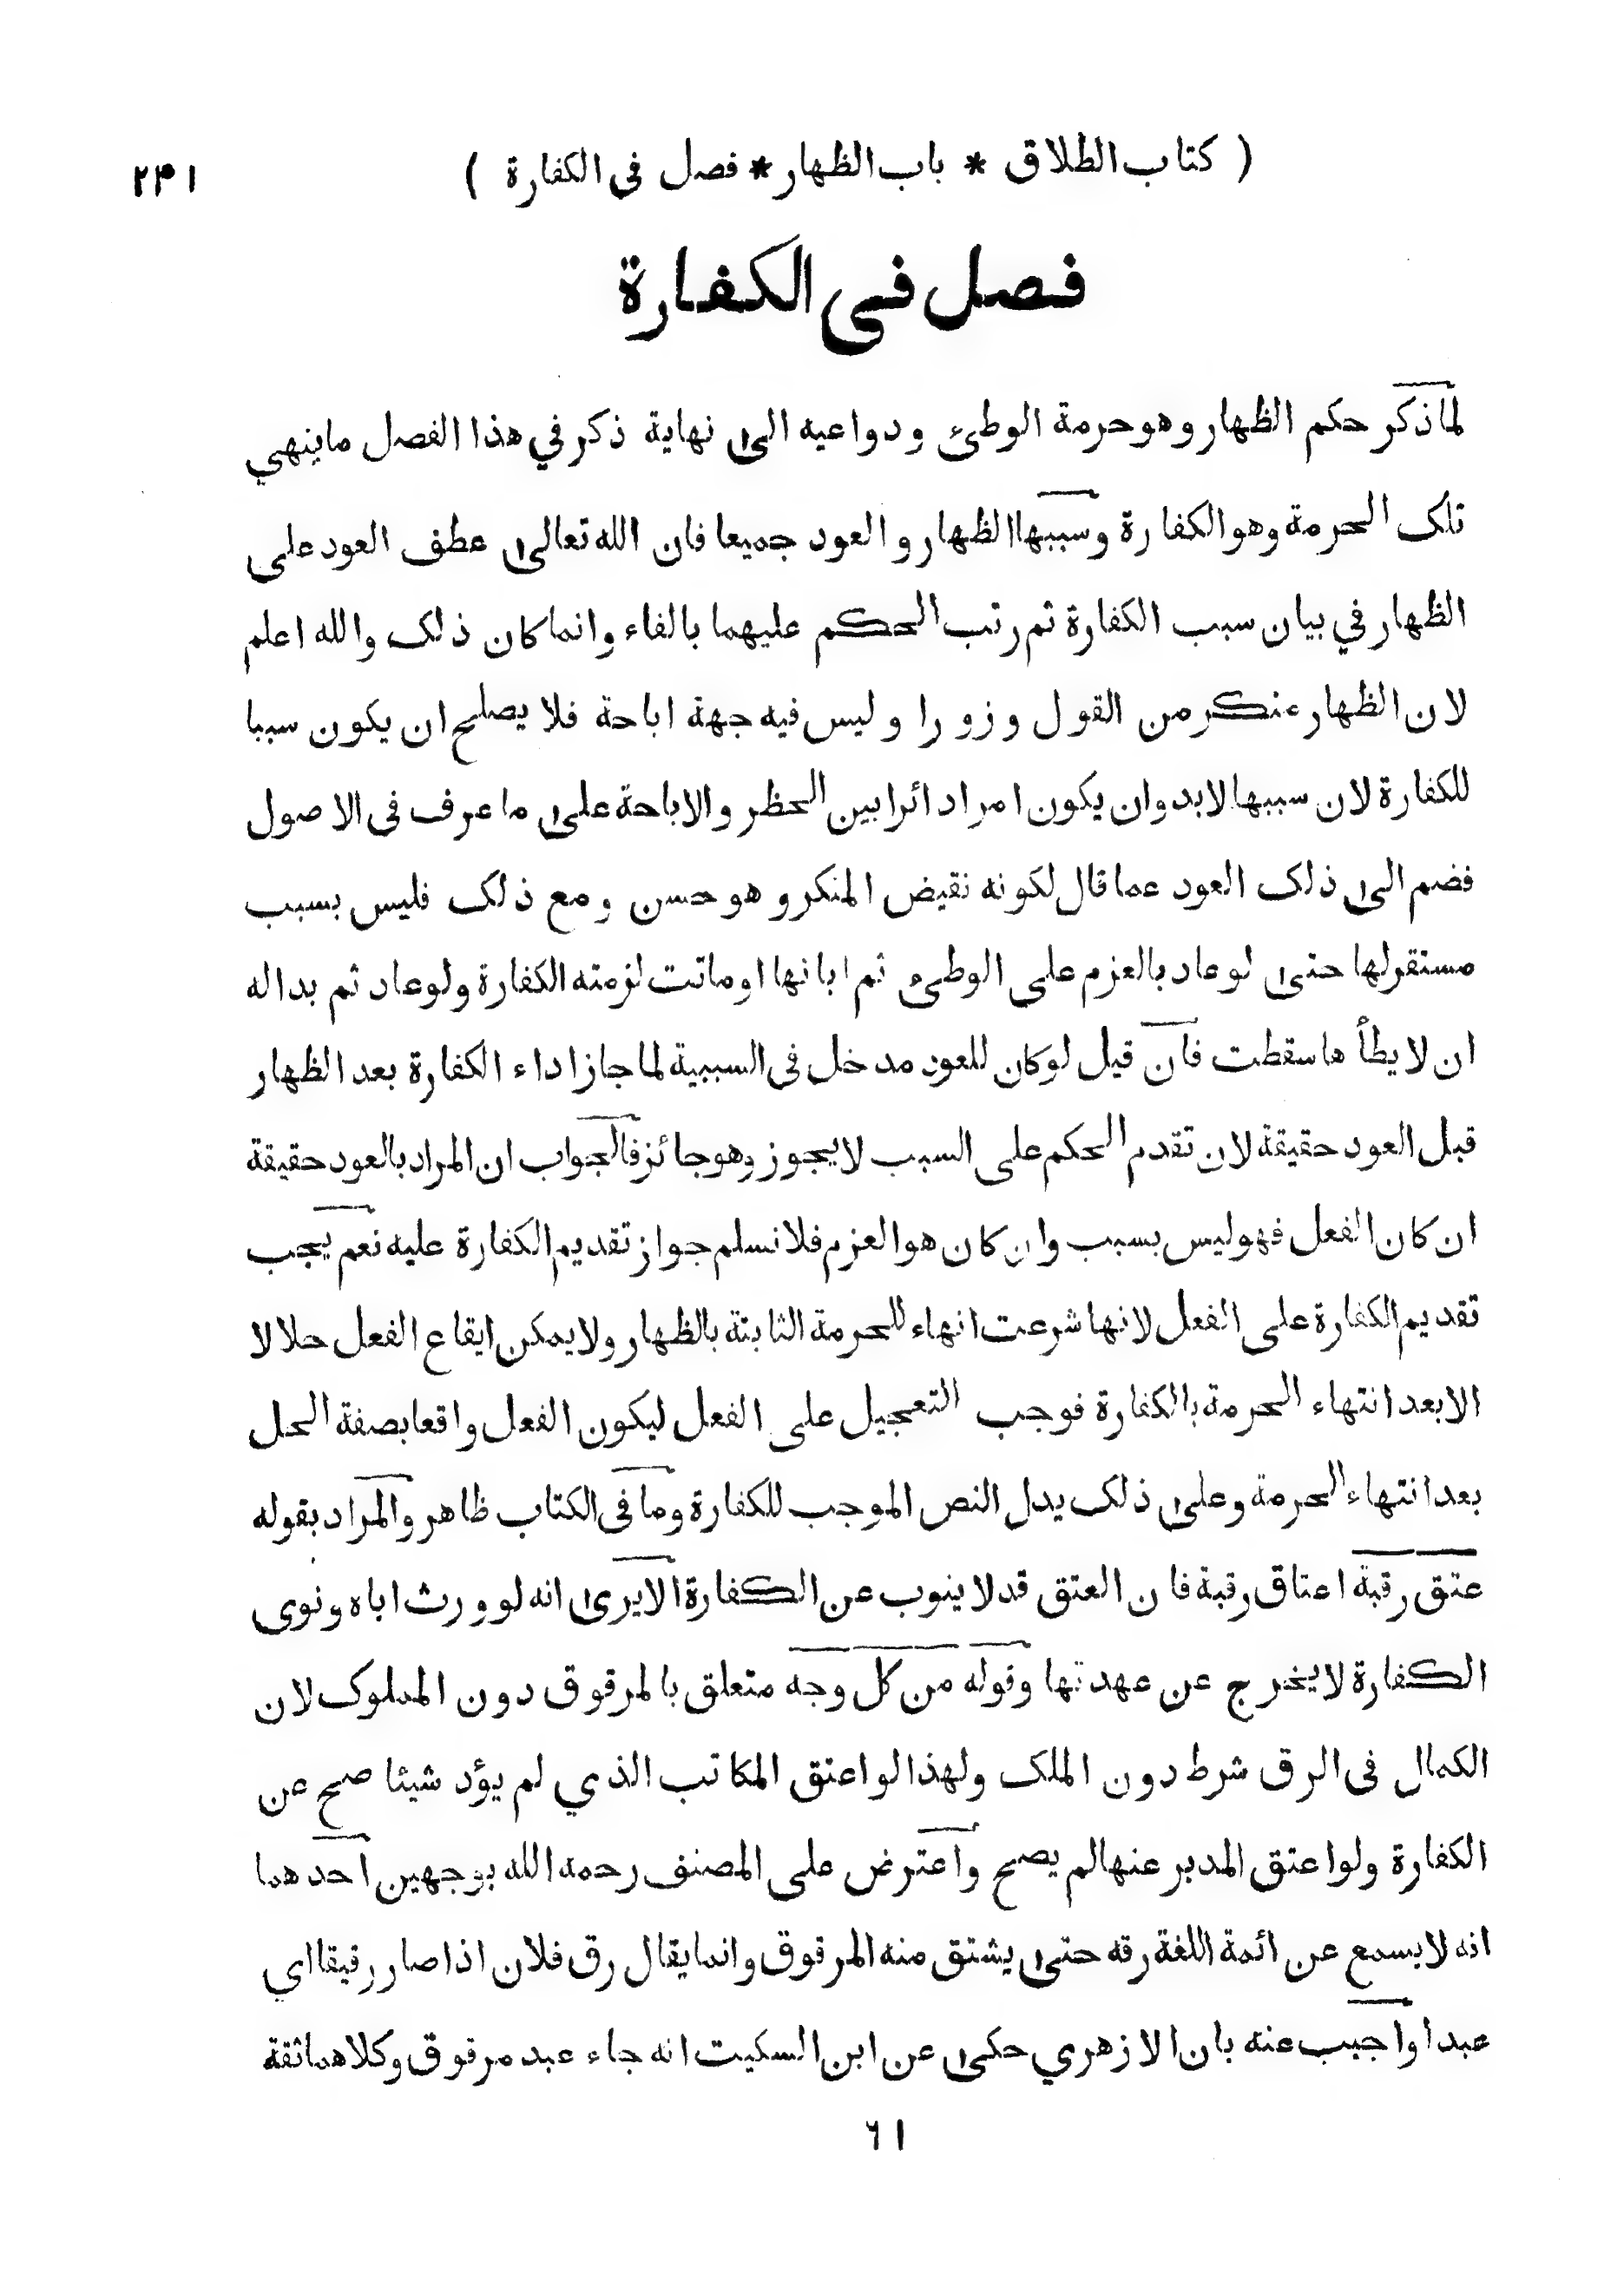 ( كتاب الطلاق * باب الظهار * فصل فى الكفارة ) ٢٤١
فصل فى الكفارة
لماذكر حكم الظهار وهو حرمة الوطئ ودواعيه الى نهاية ذكر في هذا الفصل ماينهي
تلك الحرمة وهو الكفارة وسببها الظهار والعود جميعا فان الله تعالى عطف العود على
الظهار في بيان سبب الكفارة ثم رتب الحكم عليهما بالفاء وانما كان ذلك والله اعلم
لان الظهار منكر من القول وزورا وليس فيه جهة اباحة فلا يصلح ان يكون سببا
للكفارة لان سببها لابد وان يكون امرا دائرا بين الحظر والاباحة على ما عرف فى الاصول
فضم الى ذلك العود عما قال لكونه نقيض المنكر وهو حسن ومع ذلك فليس بسبب
مستقر لها حتى لوعاد بالعزم على الوطئ ثم ابانها او ماتت لزمته الكفارة ولوعاد ثم بداله
ان لا يطأ ها سقطت فان قيل لوكان للعود مدخل فى السببية لما جاز اداء الكفارة بعد الظهار
قبل العود حقيقة لان تقدم الحكم على السبب لا يجوز وهو جائز فالجواب ان المراد بالعود حقيقة
ان كان الفعل فهو ليس بسبب وان كان هو العزم فلا نسلم جواز تقديم الكفارة عليه نعم يجب
تقديم الكفارة على الفعل لانها شرعت انهاء للحرمة الثابتة بالظهار ولا يمكن ايقاع الفعل حلالا
الا بعد انتهاء الحرمة بالكفارة فوجب التعجيل على الفعل ليكون الفعل واقعا بصفة الحل
بعد انتهاء الحرمة وعلى ذلك يدل النص الموجب للكفارة وما فى الكتاب ظاهر والمراد بقوله
عتق رقبة اعتاق رقبة فان العتق قد لا ينوب عن الكفارة الا يرى انه لو ورث اباه ونوى
الكفارة لا يخرج عن عهدتها وقوله من كل وجه متعلق بالمرقوق دون المملوك لان
الكمال فى الرق شرط دون الملك ولهذا لو اعتق المكاتب الذي لم يؤد شيئا صح عن
الكفارة ولو اعتق المدبر عنها لم يصح واعترض على المصنف رحمه الله بوجهين احدهما
انه لا يسمع عن ائمة اللغة رقه حتى يشتق منه المرقوق وانما يقال رق فلان اذا صار رقيقا اي
عبدا واجيب عنه بان الازهري حكى عن ابن السكيت انه جاء عبد مرقوق وكلاهما ثقة
٦١